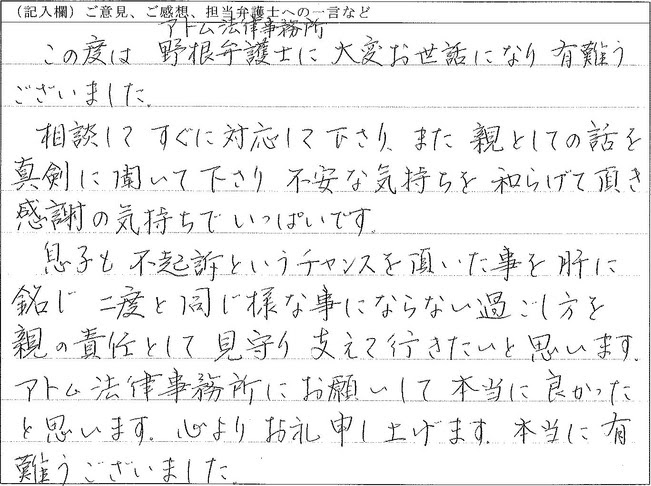 (記入欄) ご意見、ご感想、担当弁護士への一言など
アトム法律事務所
この度は 野根弁護士に 大変お世話になり 有難う
ございました。
相談して すぐに対応して下さり、また 親としての話を
真剣に聞いて下さり 不安な気持ちを 和らげて頂き
感謝の気持ちで いっぱいです。
息子も 不起訴というチャンスを頂いた事を肝に
銘じ 二度と同じ様な事にならない過ごし方を
親の責任として 見守り 支えて行きたいと思います。
アトム法律事務所に お願いして 本当に良かった
と思います。心より お礼申し上げます。本当に有
難うございました。